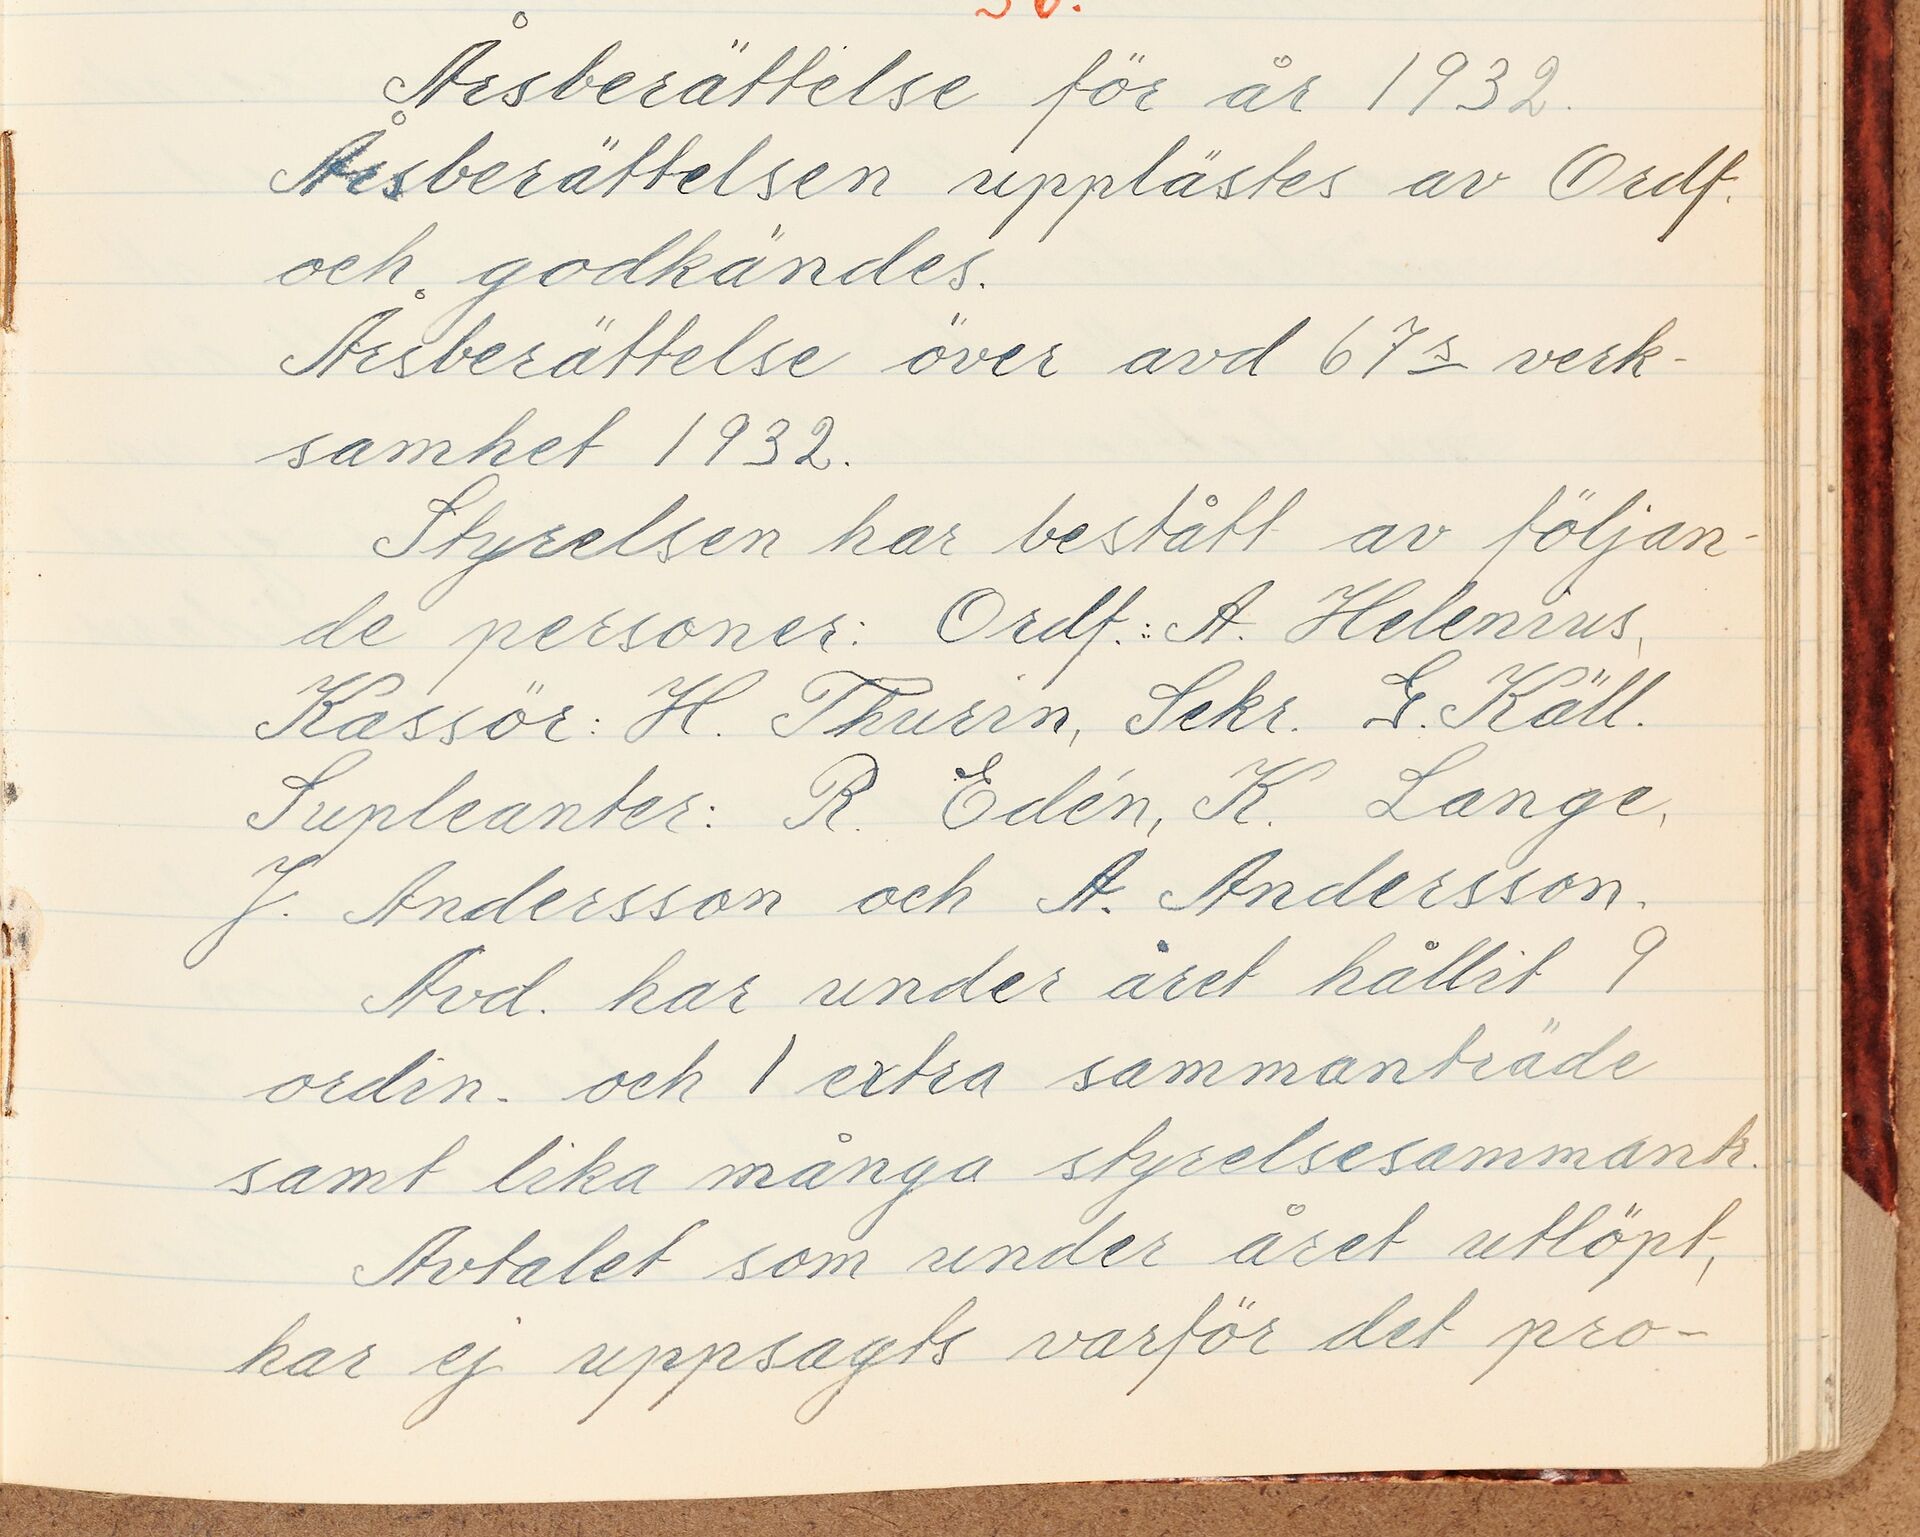 Årsberättelse för år 1932.
Årsberättelsen upplästes av Ordf.
och godkändes.
Årsberättelse över avd 67s verk-
samhet 1932.
Styrelsen har bestått av följan-
de personer: Ordf.: A. Helenius,
Kassör: H. Thurin, Sekr. G. Käll.
Supleanter: R. Edén, K. Lange,
J. Andersson och A. Andersson.
Avd. har under året hållit 9
ordin. och 1 extra sammanträde
samt lika många styrelsesammantr.
Avtalet som under året utlöpt,
har ej uppsagts varför det pro-